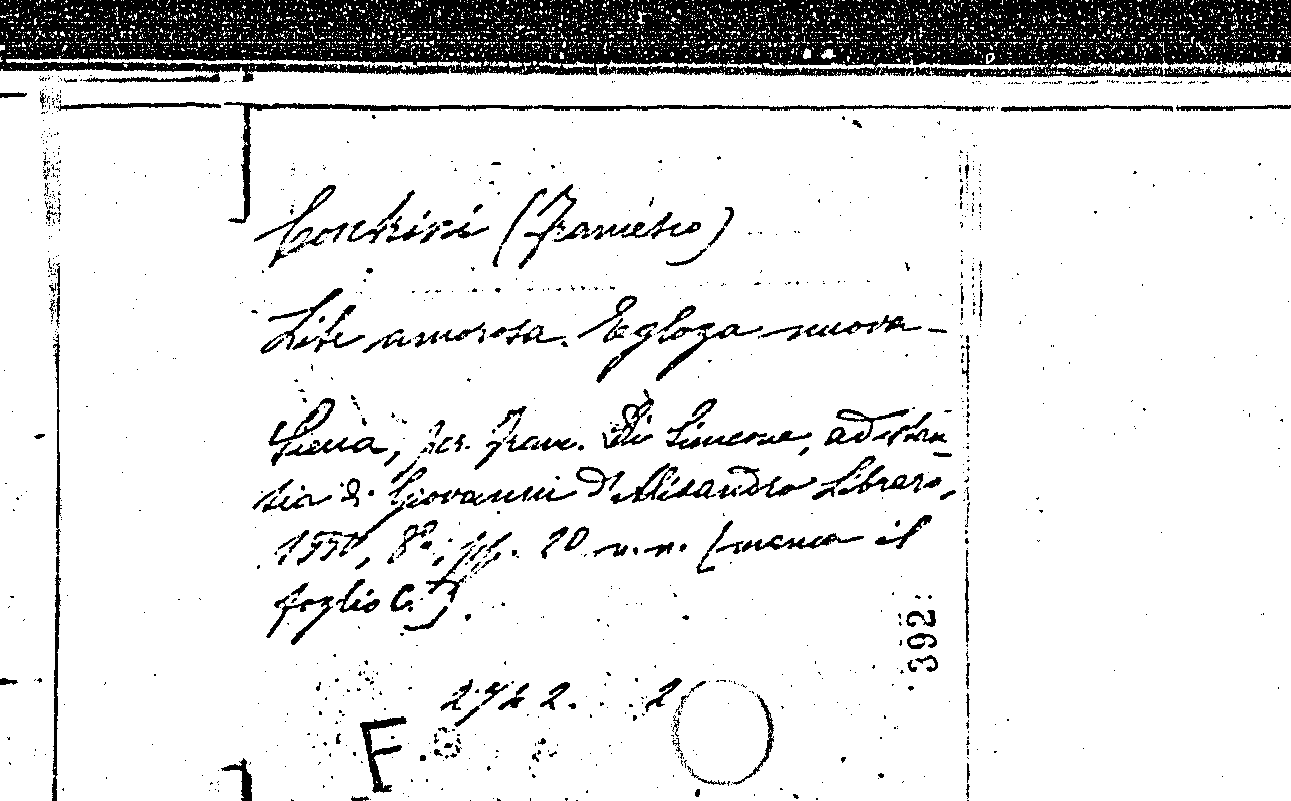 (Francesco)
Lite amorosa. Egloga nuova -
Siena, per Franc. Di Simeone, ad istan-
tia di Giovanni d'Alisandro Libraro,
1550, 8°., pp. 20 n.n. [manca il
foglio C.].
392
2742. 2
F.